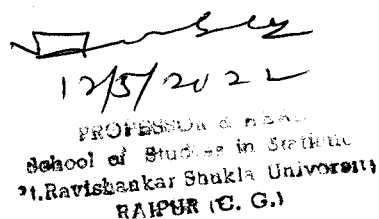 12/5/2022
PROFESSOR & HEAD
School of Studies in Statistic
Pt.Ravishankar Shukla University
RAIPUR (C. G.)